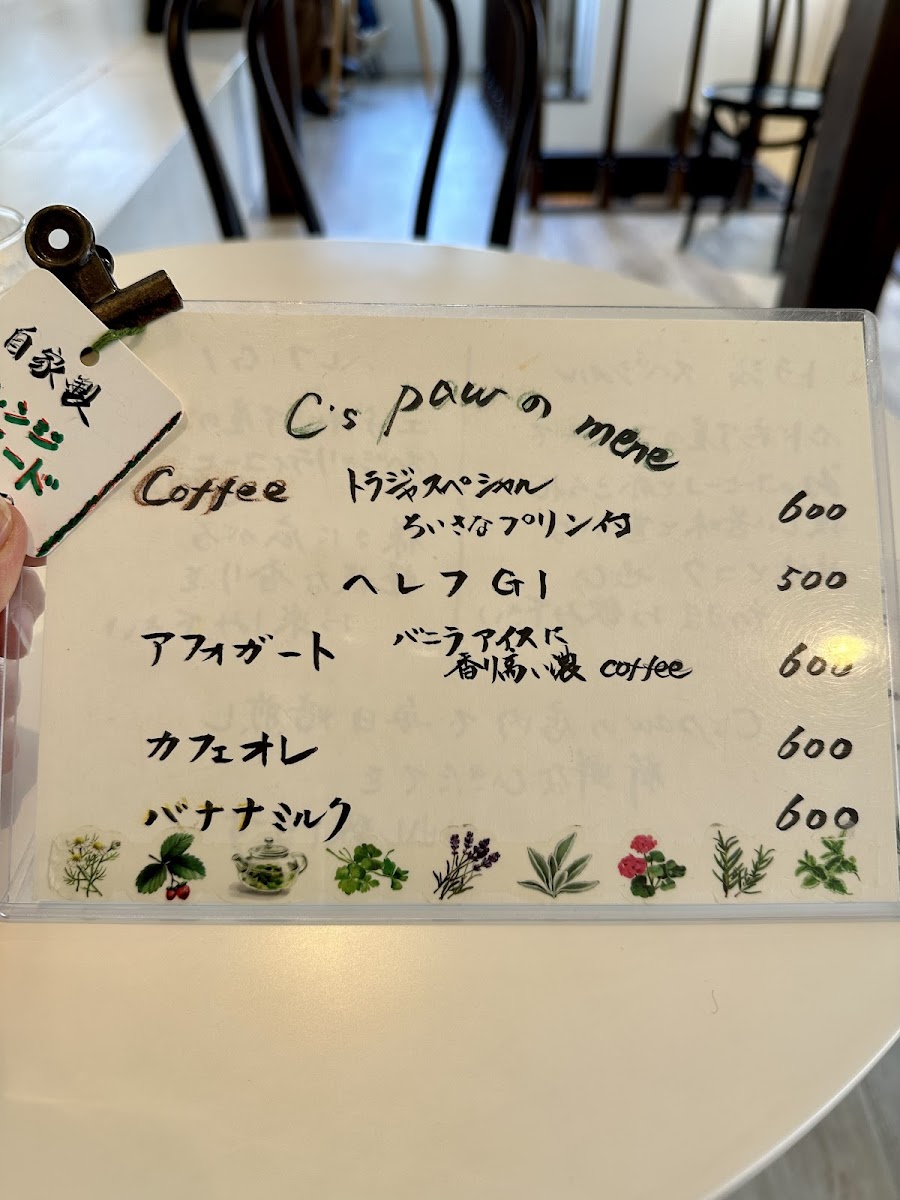 自家製
ンジ
ード
C's pawの mene
Coffee トラジャスペシャル
ちいさなプリン付 600
ヘレフG1 500
アフォガート バニラアイスに
香り高い濃 coffee 600
カフェオレ 600
バナナミルク 600